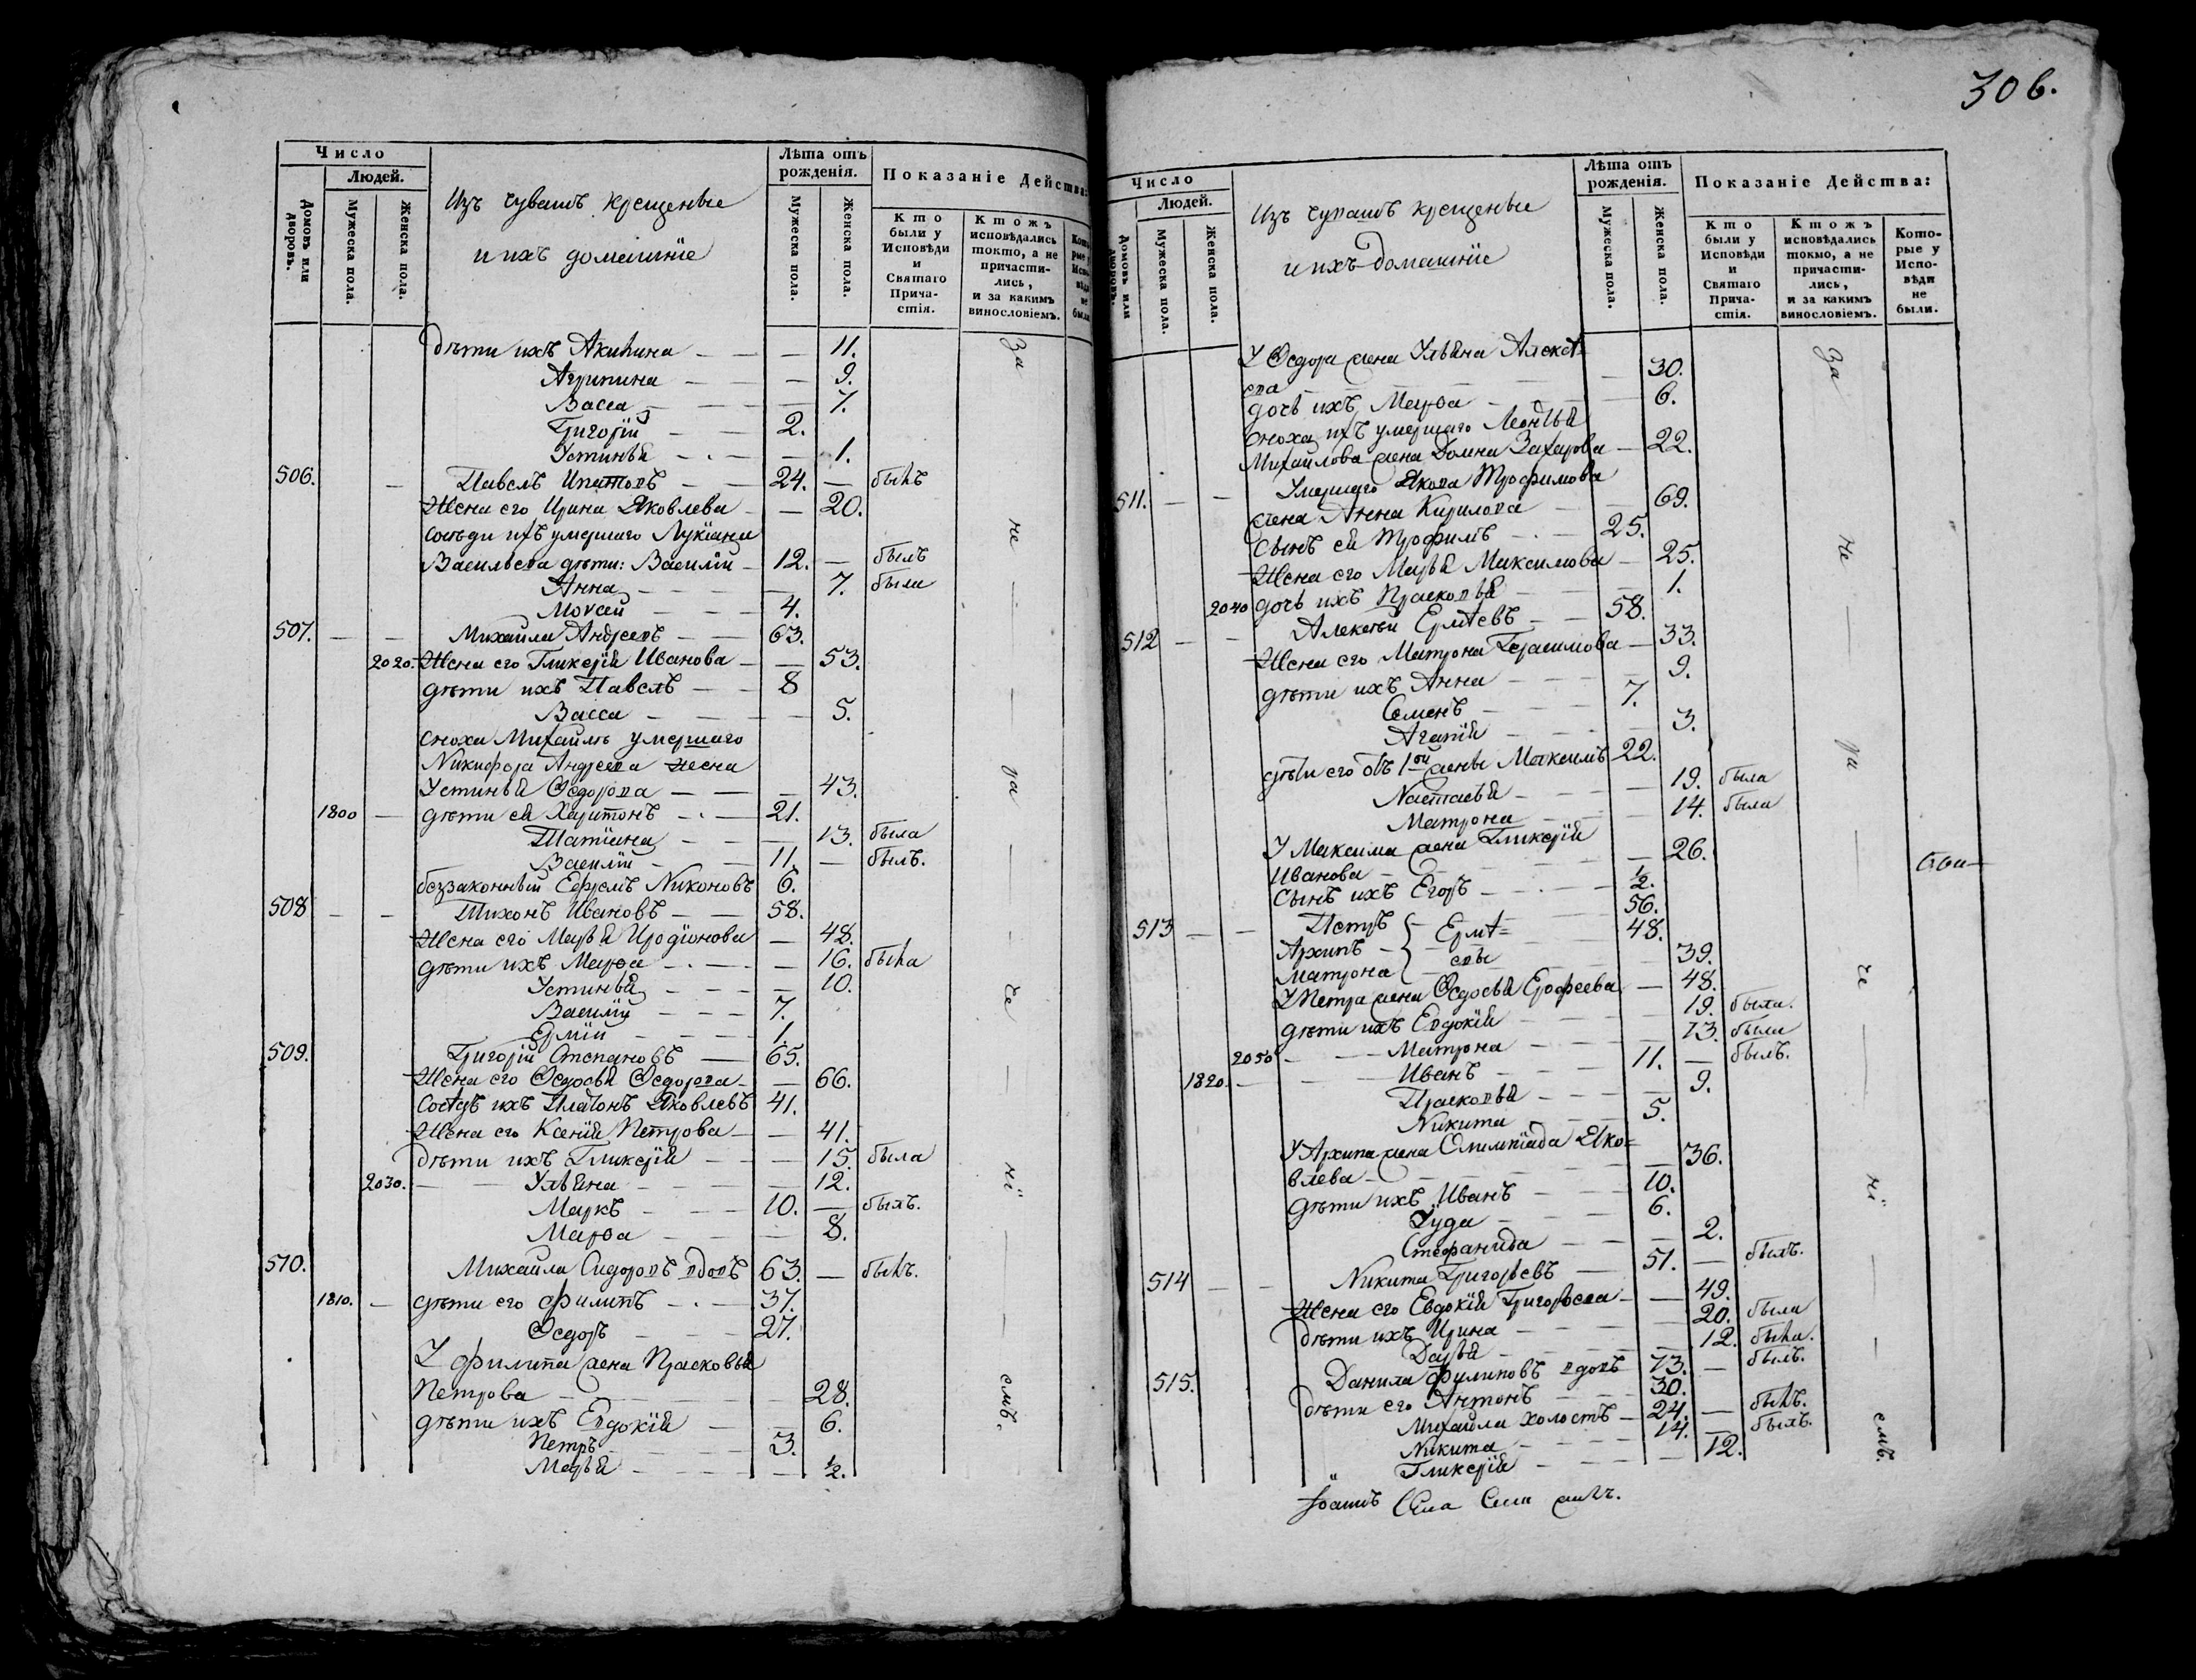 Число
Людей.
Домовъ или дворовъ.
Мужеска пола.
Женска пола.
Изъ чувашъ крещеные
и ихъ домашніе
Лѣта отъ рожденія.
Мужеска пола.
Женска пола.
Показаніе Действа:
Кто были у Исповѣди и Святаго Прича- стія.
Ктожъ исповѣдались токмо, а не причасти- лись, и за какимъ винословіемъ.
дѣти ихъ Акилина — — — 11.
Агрипина — — — 9.
Васса — — — 7.
Григорій — — 2.
Устинья — — — 1.
506. — Павелъ Ипатовъ — — 24. — былъ
Жена его Ирина Яковлева — — 20.
сосѣди ихъ умершаго Лукіана
Васильева дѣти: Василій — 12. — былъ
Анна — — — 7. была
Мосей — — — 4.
507. — — Михайла Андреевъ — — 63.
2020. Жена его Гликерія Иванова — — 53.
дѣти ихъ Павелъ — — 8
Васса — — — 5.
сноха Михайлы умершаго
Никифора Андреева жена
Устинья Ѳедорова — — — 43.
1800 — дѣти ея Харитонъ — — 21.
Татіана — — — 13. была
Василій — — 11. — былъ.
беззаконный Ефремъ Никоновъ 6.
508 — — Тихонъ Ивановъ — — 58.
Жена его Марья Иродіонова — 48.
дѣти ихъ Марѳа — — — 16. была
Устинья — — — 10.
Василій — — — 7.
Ермій — — — 1.
509. Григорій Степановъ — 65.
Жена его Ѳедосья Ѳедорова — — 66.
Сосѣдъ ихъ Платонъ Яковлевъ 41.
Жена его Ксенія Петрова — — 41.
дѣти ихъ Гликерія — — — 15. была
2030. — — Ульяна — — — 12.
Маркъ — — — 10. — былъ.
Марѳа — — — 8.
510. Михайла Сидоровъ вдовъ 63. — былъ.
1810. — дѣти его Филипъ — — 37.
Ѳедоръ — — — 27.
У Филипа жена Прасковья
Петрова — — — 28.
дѣти ихъ Евдокія — — — 6.
Петръ — — — 3.
Марья — — — — ½.
За — не — ра — че — ні — емъ.
306.
Число
Людей.
Домовъ или дворовъ.
Мужеска пола.
Женска пола.
Изъ чувашъ крещеные
и ихъ домашніе
Лѣта отъ рожденія.
Мужеска пола.
Женска пола.
Показаніе Действа:
Кто были у Исповѣди и Святаго Прича- стія.
Ктожъ исповѣдались токмо, а не причасти- лись, и за какимъ винословіемъ.
Кото- рые у Испо- вѣди не были.
У Ѳедора жена Ульяна Алексѣ=
ева — — — — 30.
дочь ихъ Марѳа — — — 6.
сноха ихъ умершаго Леонтья
Михайлова жена Домна Захарова — 22.
511. — — Умершаго Якова Трофимова
жена Анна Кирилова — — 69.
Сынъ ея Трофимъ — — 25.
Жена его Марья Максимова — 25.
2040 дочь ихъ Прасковья — — 1.
512 — — Алексѣй Ермѣевъ — — 58.
Жена его Матрона Герасимова — 33.
дѣти ихъ Анна — — — 9.
Семенъ — — — 7.
Агапія — — — 3.
дѣти его отъ 1ой жены Максимъ 22.
Настасья — — — 19. была
Матрона — — — 14. была
У Максима жена Гликерія
Иванова — — — 26.
Сынъ ихъ Егоръ — — ½.
513 — — Петръ — 56.
Архипъ — Ермѣ= 48.
Матрона евы — 39.
У Петра жена Ѳедосья Ерофеева — 48.
дѣти ихъ Евдокія — — — 19. была.
2050 — — Матрона — — — 13. была
1820. — — Иванъ — — 11. — былъ.
Прасковья — — — 9.
Никита — — 5.
У Архипа жена Олимпіада Яко=
влева — — — 36.
дѣти ихъ Иванъ — — 10.
Іуда — — — 6.
Стефанида — — — 2.
514 — — Никита Григорьевъ — 51. — былъ.
Жена его Евдокія Григорьева — — 49.
дѣти ихъ Ирина — — — 20. была
Дарья — — — 12. была.
515. Данила Филиповъ вдовъ 73. — былъ.
дѣти его Антонъ — — 30.
Михайла холостъ — 24. — былъ.
Никита — — 14. — былъ.
Гликерія — — — 12.
За — не — ра — че — ні — емъ.